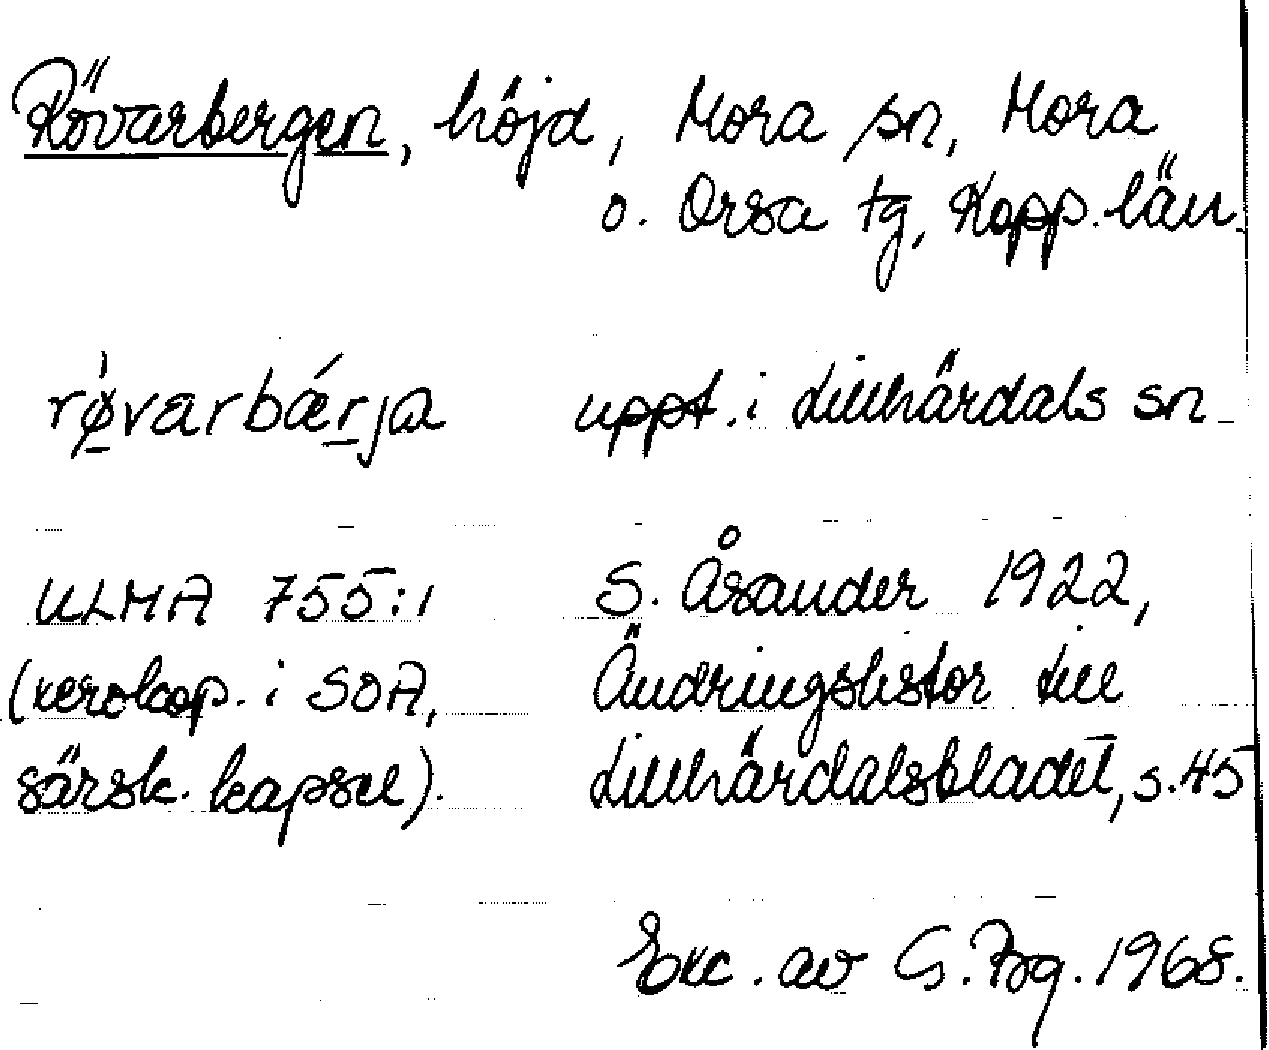 Rövarbergen, höjd, Mora sn, Mora
o. Orsa tg, Kopp. län.
rǿ̱varbǽṟja uppt. i Lillhärdals sn
ULMA 755:1 S. Åsander 1922,
(xerokop. i SOA, Ändringslistor till
särsk. kapsel). Lillhärdalsbladet, s. 45
Exc. av G. Fbg. 1968.